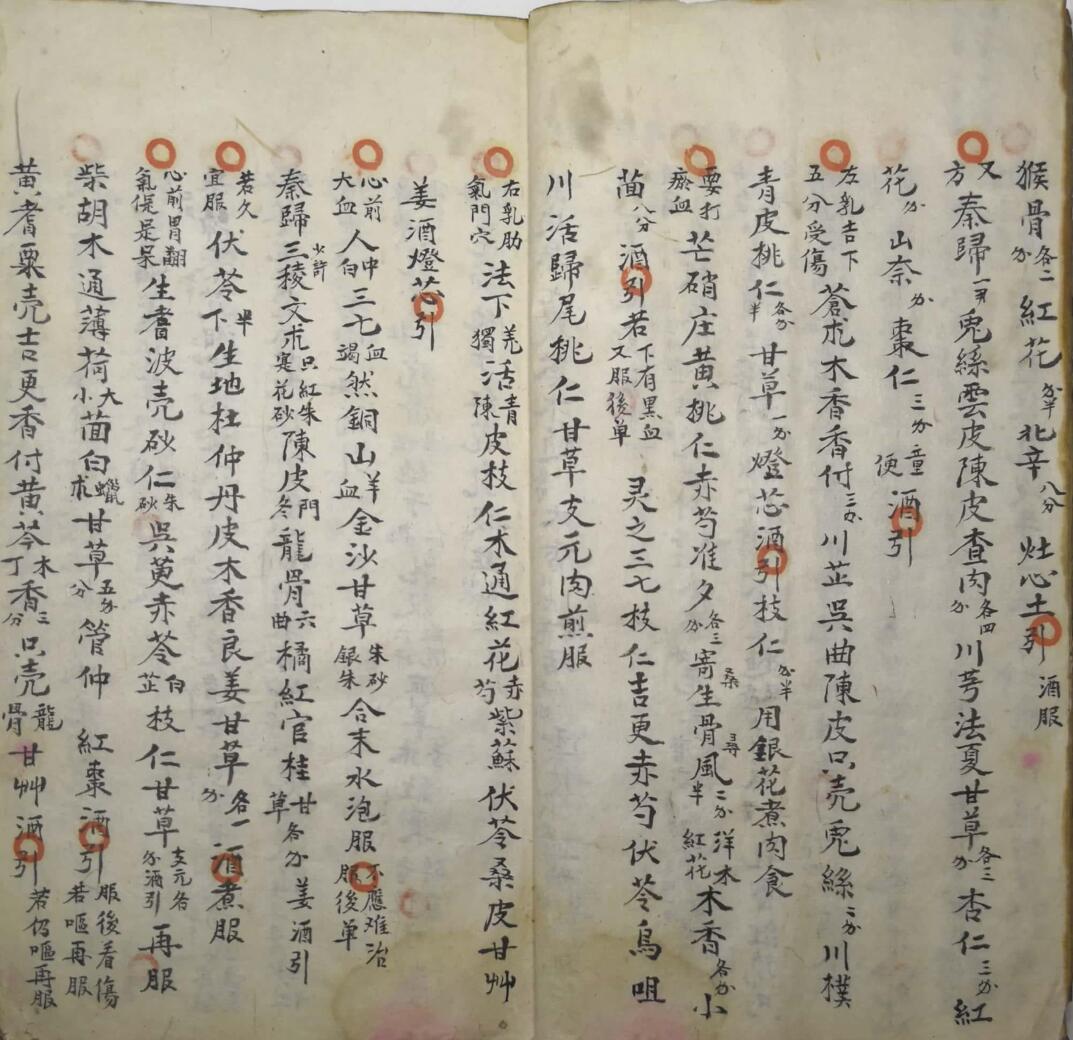 猴骨各二分紅花分半北辛八分灶心土引酒服
又方秦歸一錢兎絲雲皮陳皮查肉各四分川芎法夏甘草各三分杏仁三分紅
花分山奈分棗仁三分童便酒引
左乳吉下五分受傷蒼朮木香香付三分川芷吳曲陳皮只壳兎絲二分川樸
青皮桃仁各分半甘草一分燈芯酒引枝仁分半用銀花煮肉食
要打瘀血芒硝庄黄桃仁赤芍准夕各三分寄生桑骨風尋半二分洋木紅花木香各分小
茴八分酒引若下有黑血又服後单灵之三七枝仁吉更赤芍伏苓烏咀
川活歸尾桃仁甘草支元肉煎服
右乳肋氣門穴法下羌獨活青陳皮枝仁木通紅花赤芍紫蘇伏苓桑皮甘艸
姜酒燈芯引
心前大血人中白三七血竭然銅山羊血金沙甘草朱砂銀朱合末水泡服不應难治服後单
秦歸三稜少許文朮只寔紅花朱砂陳皮門冬龍骨六曲橘紅官桂甘草各分姜酒引
若久宜服伏苓下半生地杜仲丹皮木香良姜甘草各一分酒煮服
心前胃翻氣促是呆生耆波壳砂仁朱砂吳萸赤苓白芷枝仁甘草支元各分酒引再服
柴胡木通薄荷大小茴白蠟朮甘草五分分管仲紅棗酒引服後看傷若嘔再服
黄耆粟壳吉更香付黄芩木丁香三分只壳龍骨甘艸酒引若仍嘔再服